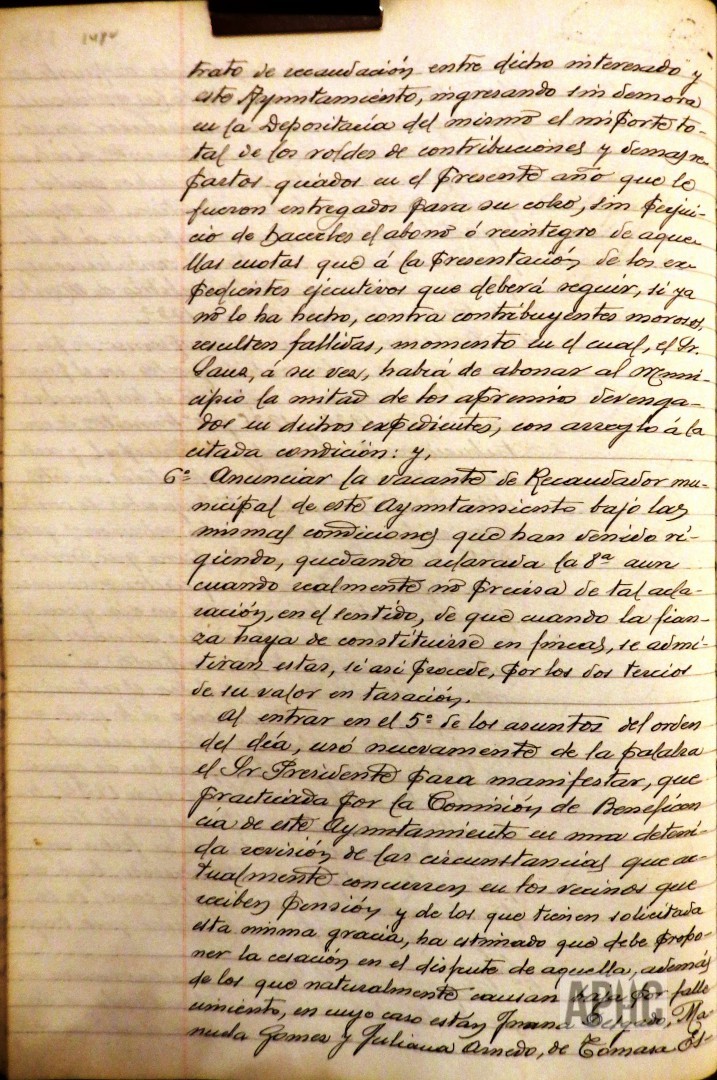 trato de recaudación entre dicho interesado y
este Ayuntamiento, ingresando sin demora
en la Depositaría del mismo el importe to-
tal de los roldes de contribuciones y demas re-
partos girados en el presente año que le
fueron entregados para su cobro, sin perjui-
cio de hacerles el abono ó reintegro de aque-
llas cuotas que á la presentación de los ex-
pedientes ejecutivos que deberá seguir, si ya
no lo ha hecho, contra contribuyentes morosos,
resulten fallidas, momento en el cual, el Sr.
Sanz, á su vez, habrá de abonar al Muni-
cipio la mitad de los apremios devenga-
dos en dichos expedientes, con arreglo á la
citada condición: y,
6º Anunciar la vacante de Recaudador mu-
nicipal de este Ayuntamiento bajo las
mismas condiciones que han venido ri-
giendo, quedando aclarada la 8ª aun
cuando realmente no precisa de tal acla-
ración, en el sentido, de que cuando la fian-
za haya de constituirse en fincas, se admi-
tiran estas, si asi procede, por los dos tercios
de su valor en tasación.
Al entrar en el 5º de los asuntos del orden
del día, usó nuevamente de la palabra
el Sr Presidente para manifestar, que
practicada por la Comisión de Beneficen
cia de este Ayuntamiento en una deteni-
da revisión de las circunstancias que ac-
tualmente concurren en los vecinos que
reciben pensión y de los que tienen solicitada
esta misma gracia, ha estimado que debe propo-
ner la cesación en el disfrute de aquella, además
de los que naturalmente causan baja por falle
cimiento, en cuyo caso estan Juana Delgado, Ma-
nuela Gomez y Juliana Arnedo, de Tomasa Es-
APHC